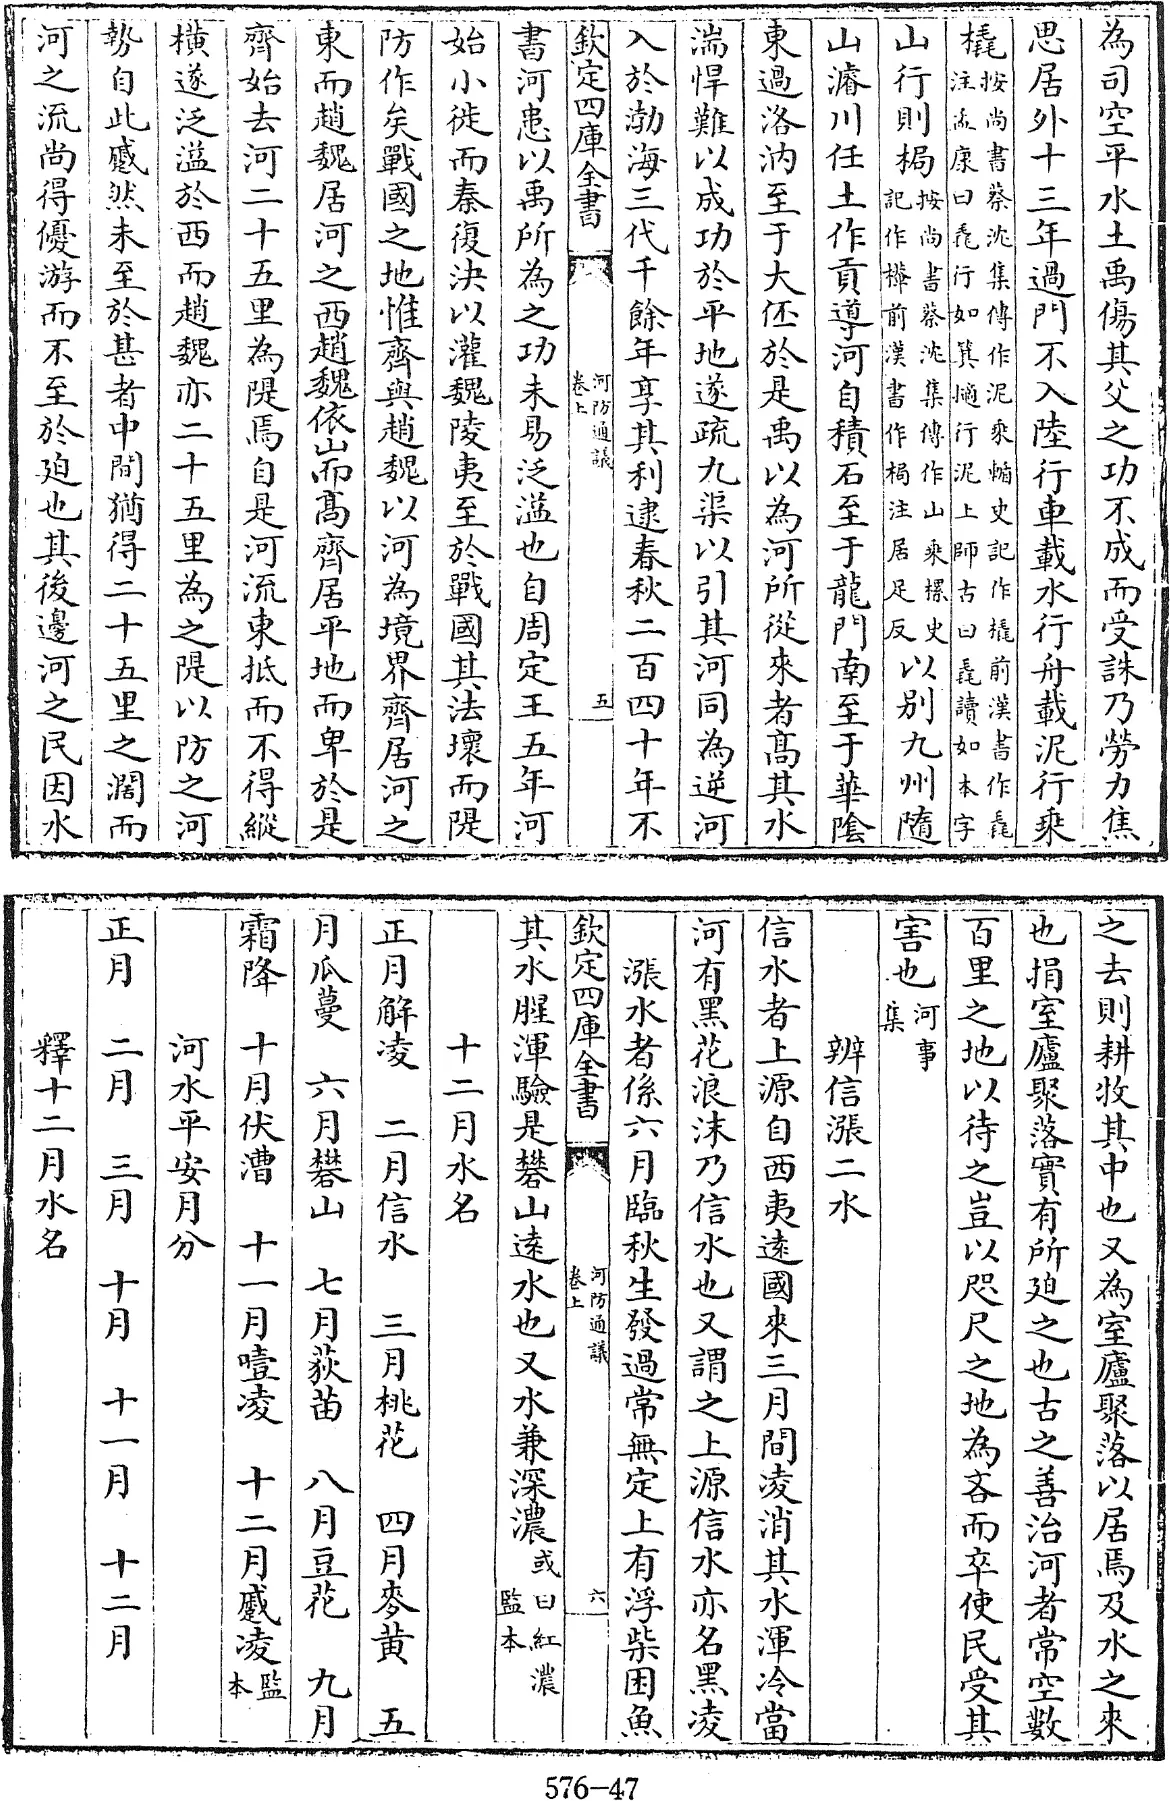 為司空平水土禹傷其父之功不成而受誅乃勞力焦
思居外十三年過門不入陸行車載水行舟載泥行乘
橇按尚書蔡沈集傳作泥乘輴史記作橇前漢書作毳注孟康曰毳行如箕擿行泥上師古曰毳讀如本字
山行則梮按尚書蔡沈集傳作山乘樏史記作檋前漢書作梮注居足反以别九州隨
山濬川任土作貢導河自積石至于龍門南至于華陰
東過洛汭至于大伾於是禹以為河所從來者髙其水
湍悍難以成功於平地遂疏九渠以引其河同為逆河
入於渤海三代千餘年享其利逮春秋二百四十年不
欽定四庫全書
河防通議
卷上
五
書河患以禹所為之功未易泛溢也自周定王五年河
始小徙而秦復決以灌魏陵夷至於戰國其法壞而隄
防作矣戰國之地惟齊與趙魏以河為境界齊居河之
東而趙魏居河之西趙魏依山而髙齊居平地而卑於是
齊始去河二十五里為隄焉自是河流東抵而不得縱
橫遂泛溢於西而趙魏亦二十五里為之隄以防之河
勢自此蹙然未至於甚者中間猶得二十五里之濶而
河之流尚得優游而不至於廹也其後邊河之民因水
之去則耕牧其中也又為室廬聚落以居焉及水之來
也捐室廬聚落實有所廹之也古之善治河者常空數
百里之地以待之豈以咫尺之地為吝而卒使民受其
害也河事集
辨信漲二水
信水者上源自西夷遠國來三月間凌消其水渾冷當
河有黑花浪沫乃信水也又謂之上源信水亦名黑凌
漲水者係六月臨秋生發過常無定上有浮柴困魚
欽定四庫全書
河防通議
卷上
六
其水腥渾驗是礬山遠水也又水兼深濃或曰紅濃監本
十二月水名
正月解凌　二月信水　三月桃花　四月麥黄　五
月瓜蔓　六月礬山　七月荻苗　八月豆花　九月
霜降　十月伏漕　十一月噎凌　十二月蹙凌監本
河水平安月分
正月　二月　三月　十月　十一月　十二月
釋十二月水名
576-47